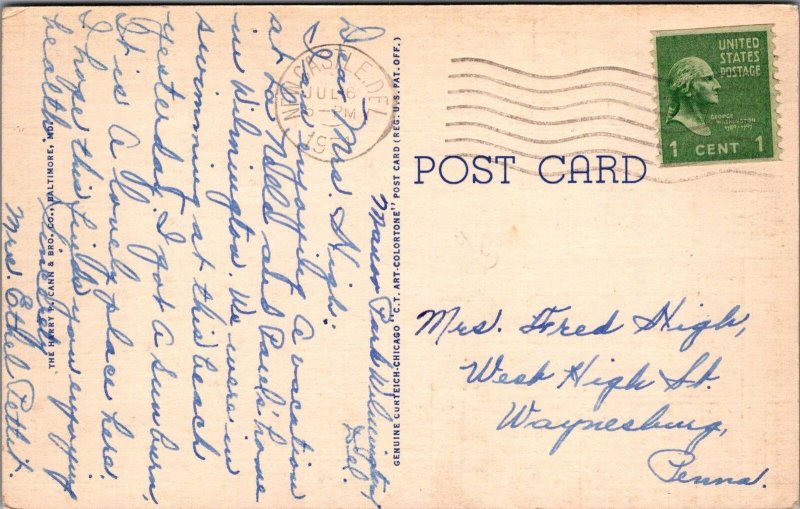 Manor Park Wilmington,
Del.
Dear Mrs. High:
I am enjoying a vacation
at La Nell and Paul's home
in Wilmington. We were in
swimming at this beach
yesterday. I got a sunburn.
It is a lovely place here.
I hope this finds you enjoying
health. Sincerely
Mrs. Ethel Pettit.
THE HARRY P. CANN & BRO. CO., BALTIMORE, MD.
GENUINE CURTEICH-CHICAGO "C.T. ART-COLORTONE" POST CARD (REG. U.S. PAT. OFF.)
NEW CASTLE, DEL.
JUL 6
PM
19
UNITED
STATES
POSTAGE
GEORGE
WASHINGTON
1789-1797
1 CENT 1
POST CARD
Mrs. Fred High,
West High St.
Waynesburg,
Penna.